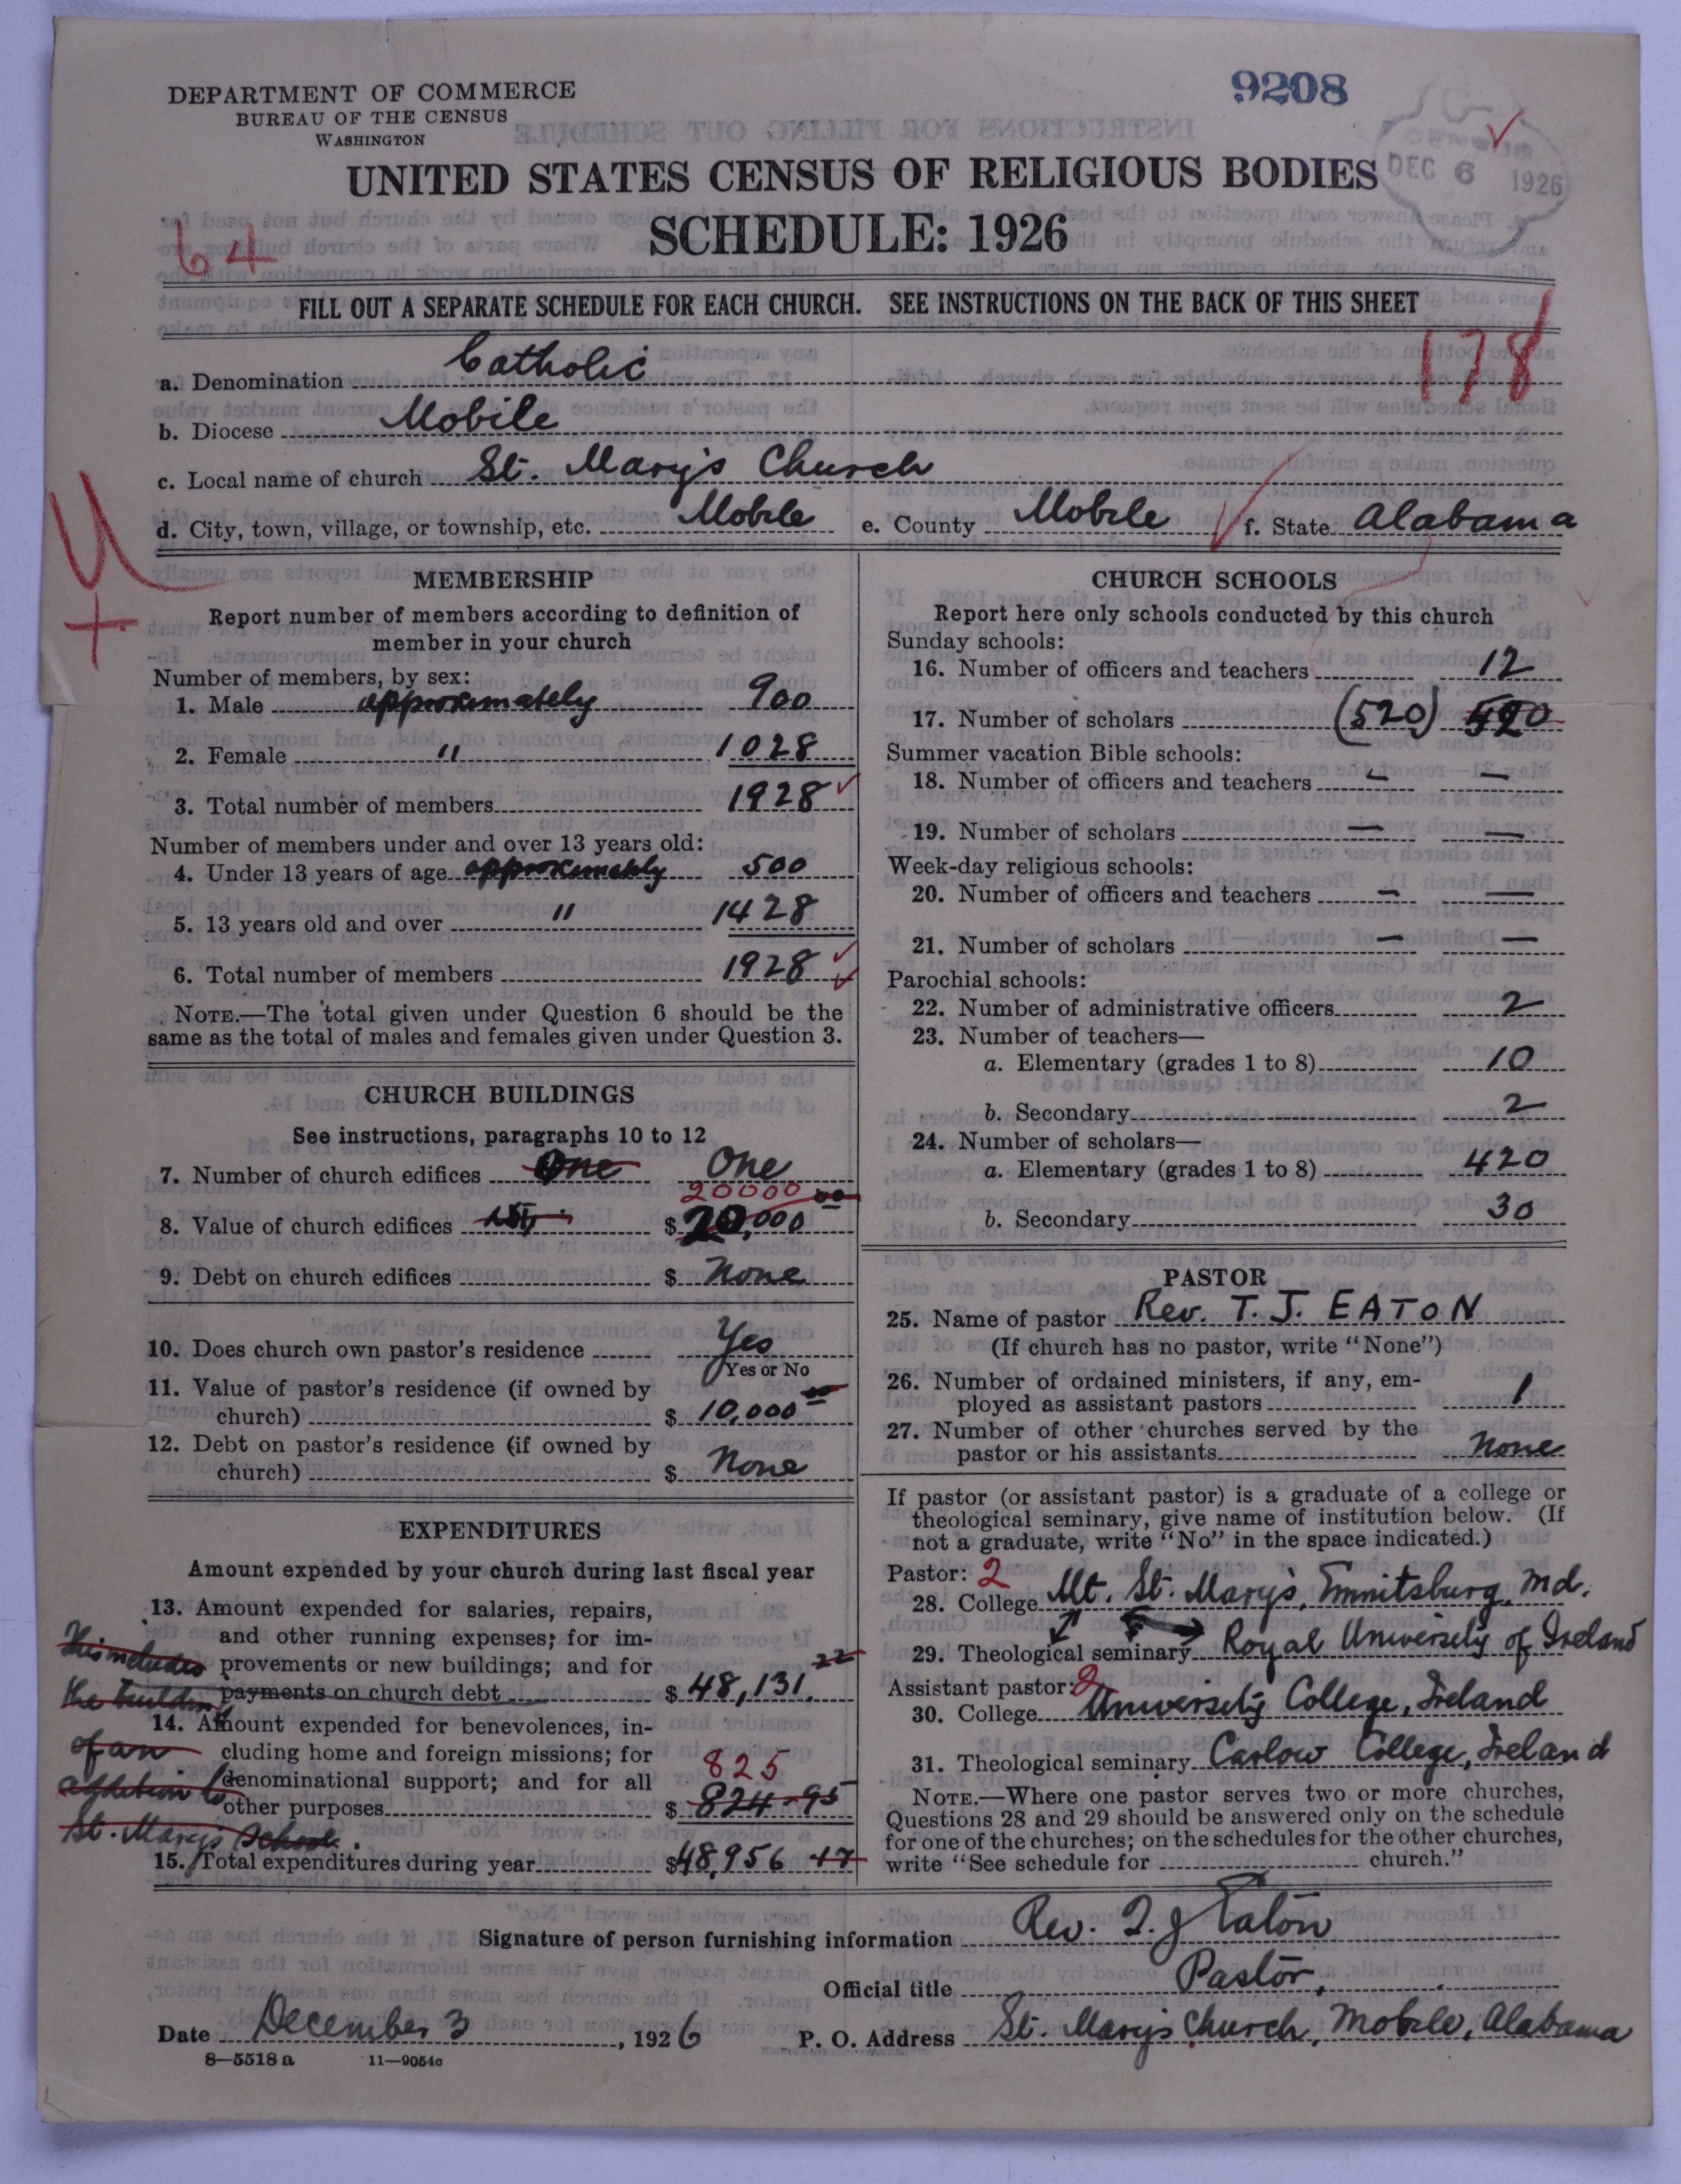 DEPARTMENT OF COMMERCE
BUREAU OF THE CENSUS
WASHINGTON
9208
DEC 6 1926
UNITED STATES CENSUS OF RELIGIOUS BODIES
SCHEDULE: 1926
64
FILL OUT A SEPARATE SCHEDULE FOR EACH CHURCH. SEE INSTRUCTIONS ON THE BACK OF THIS SHEET
178
a. Denomination Catholic
b. Diocese Mobile
c. Local name of church St. Mary's Church
d. City, town, village, or township, etc. Mobile e. County Mobile f. State Alabama
MEMBERSHIP
Report number of members according to definition of
member in your church
Number of members, by sex:
1. Male approximately 900
2. Female " 1028
3. Total number of members 1928
Number of members under and over 13 years old:
4. Under 13 years of age approximately 500
5. 13 years old and over " 1428
6. Total number of members 1928
NOTE.—The total given under Question 6 should be the
same as the total of males and females given under Question 3.
CHURCH BUILDINGS
See instructions, paragraphs 10 to 12
7. Number of church edifices One One
20000
8. Value of church edifices $ 20,000 00
9. Debt on church edifices $ None
10. Does church own pastor's residence Yes
Yes or No
11. Value of pastor's residence (if owned by
church) $ 10,000
12. Debt on pastor's residence (if owned by
church) $ None
EXPENDITURES
Amount expended by your church during last fiscal year
13. Amount expended for salaries, repairs,
and other running expenses; for im-
This includes provements or new buildings; and for
the building payments on church debt $ 48,131.22
14. Amount expended for benevolences, in-
of an cluding home and foreign missions; for
825
addition to denominational support; and for all
other purposes $ 824-95
St. Mary's School.
15. Total expenditures during year $48,956 17
CHURCH SCHOOLS
Report here only schools conducted by this church
Sunday schools:
16. Number of officers and teachers 12
17. Number of scholars (520) 520
Summer vacation Bible schools:
18. Number of officers and teachers — —
19. Number of scholars — —
Week-day religious schools:
20. Number of officers and teachers — —
21. Number of scholars — —
Parochial schools:
22. Number of administrative officers 2
23. Number of teachers—
a. Elementary (grades 1 to 8) 10
b. Secondary 2
24. Number of scholars—
a. Elementary (grades 1 to 8) 420
b. Secondary 30
PASTOR
25. Name of pastor Rev. T. J. EATON
(If church has no pastor, write "None")
26. Number of ordained ministers, if any, em-
ployed as assistant pastors 1
27. Number of other churches served by the
pastor or his assistants None
If pastor (or assistant pastor) is a graduate of a college or
theological seminary, give name of institution below. (If
not a graduate, write "No" in the space indicated.)
Pastor: 2
28. College Mt. St. Mary's, Emmitsburg, Md.
29. Theological seminary Royal University of Ireland
Assistant pastor: 2
30. College University College, Ireland
31. Theological seminary Carlow College, Ireland
NOTE.—Where one pastor serves two or more churches,
Questions 28 and 29 should be answered only on the schedule
for one of the churches; on the schedules for the other churches,
write "See schedule for church."
Signature of person furnishing information Rev. T. J Eaton
Official title Pastor,
Date December 3, 1926 P. O. Address St. Mary's Church, Mobile, Alabama
8—5518 a 11—9054c